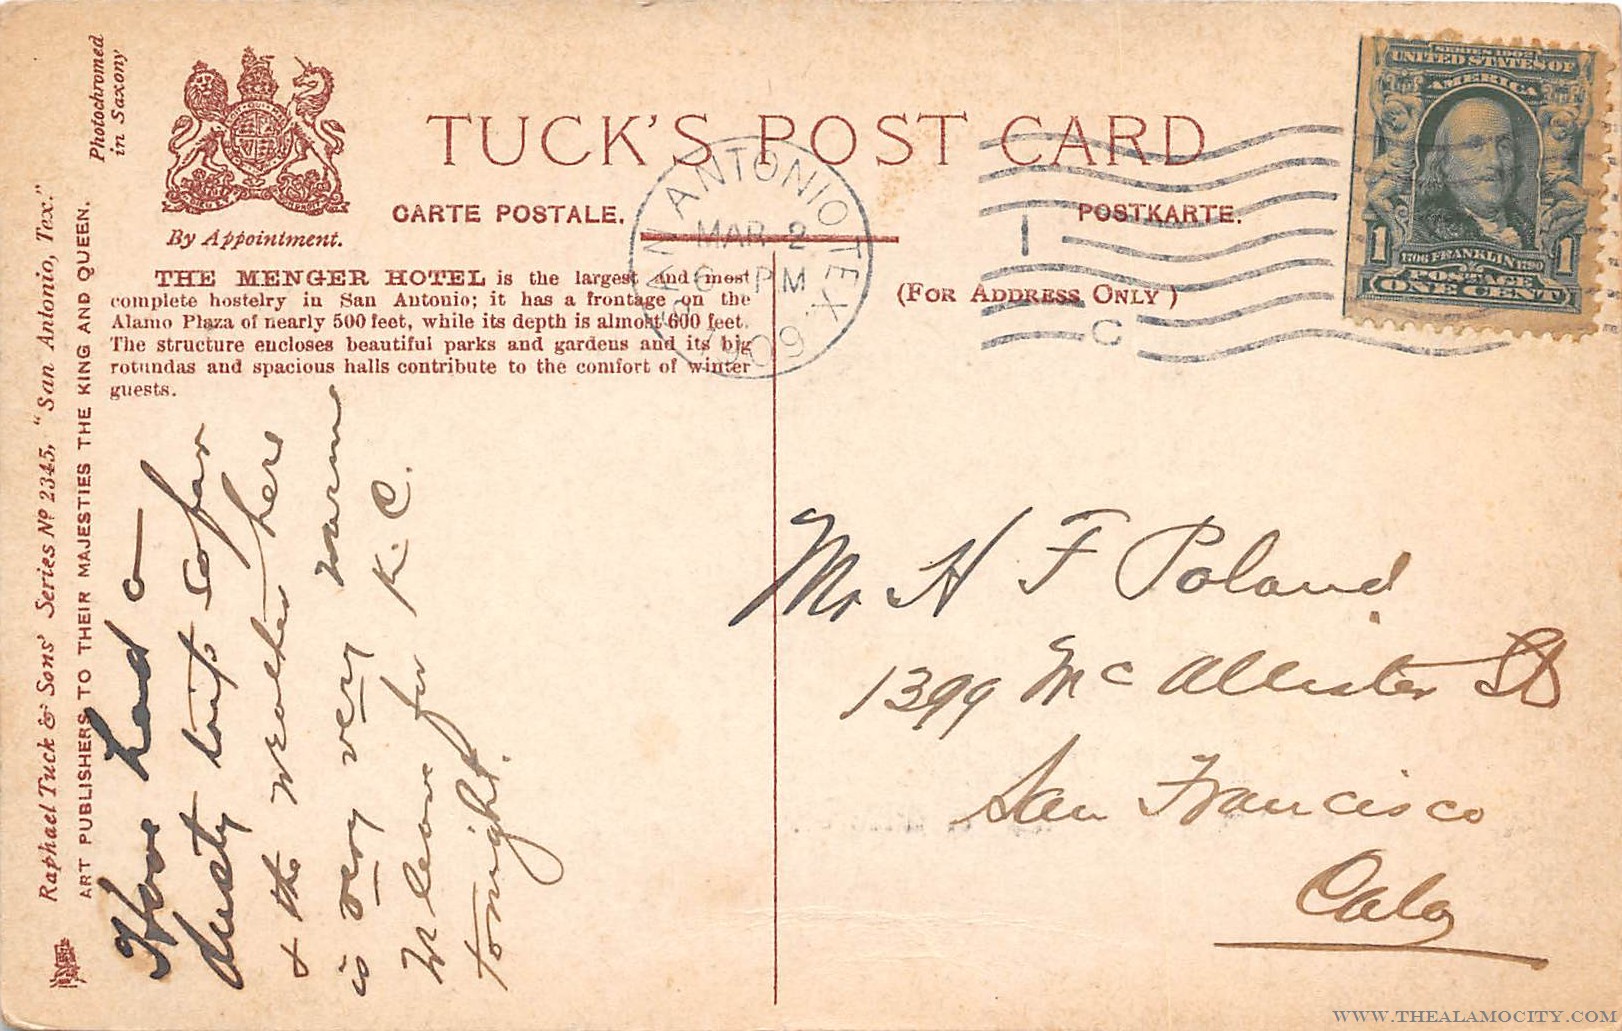 Photochromed
in Saxony
Raphael Tuck & Sons' Series Nº 2345, "San Antonio, Tex."
ART PUBLISHERS TO THEIR MAJESTIES THE KING AND QUEEN.
By Appointment.
TUCK'S POST CARD
CARTE POSTALE.
POSTKARTE.
(FOR ADDRESS ONLY)
THE MENGER HOTEL is the largest and most
complete hostelry in San Antonio; it has a frontage on the
Alamo Plaza of nearly 500 feet, while its depth is almost 600 feet.
The structure encloses beautiful parks and gardens and its big
rotundas and spacious halls contribute to the comfort of winter
guests.
SAN ANTONIO, TEX.
MAR 2
6 PM
1909
1
C
SERIES 1902
UNITED STATES OF
AMERICA
1706 FRANKLIN 1790
POSTAGE
1 ONE CENT 1
Have had a
dusty trip so far
& the weather here
is very very warm
leave for K.C.
tonight.
Mr H F Poland
1399 McAllister St
San Francisco
Cala
WWW.THEALAMOCITY.COM